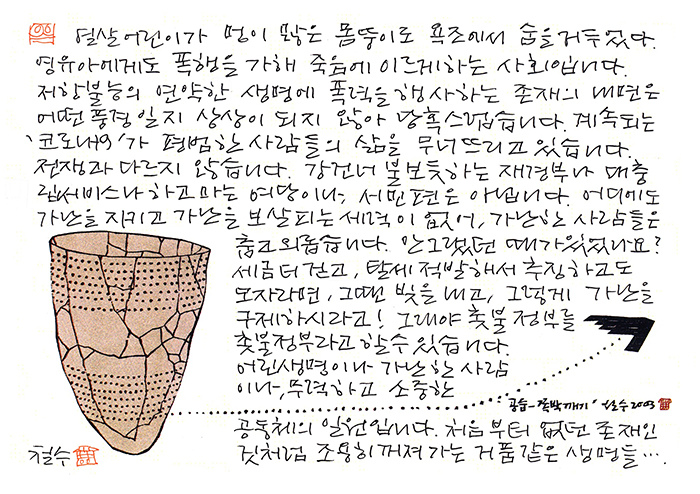 열살 어린이가 멍이 많은 몸뚱이로 욕조에서 숨을 거두었다.
영유아에게도 폭행을 가해 죽음에 이르게하는 사회입니다.
저항불능의 연약한 생명에 폭력을 행사하는 존재의 내면은
어떤 풍경일지 상상이 되지 않아 당혹스럽습니다. 계속되는
'코로나19'가 평범한 사람들의 삶을 무너뜨리고 있습니다.
전쟁과 다르지 않습니다. 강건너 불보듯하는 재정부나 대충
립써비스나 하고마는 여당이나, 서민편은 아닙니다. 어디에도
가난을 지키고 가난을 보살피는 세력이 없어, 가난한 사람들은
춥고 외롭습니다. 안그랬던 때가 있었나요?
세금 더 걷고, 탈세 적발해서 추징하고도
모자라면, 그땐 빚을 내고, 그렇게 가난을
구제하시라고! 그래야 촛불 정부를
촛불정부라고 할수 있습니다.
어린생명이나 가난한 사람
이나, 무력하고 소중한
공습-쪽박깨기 철수 2003
공동체의 일원입니다. 처음부터 없던 존재인
것처럼 조용히 꺼져가는 거품같은 생명들….
철수